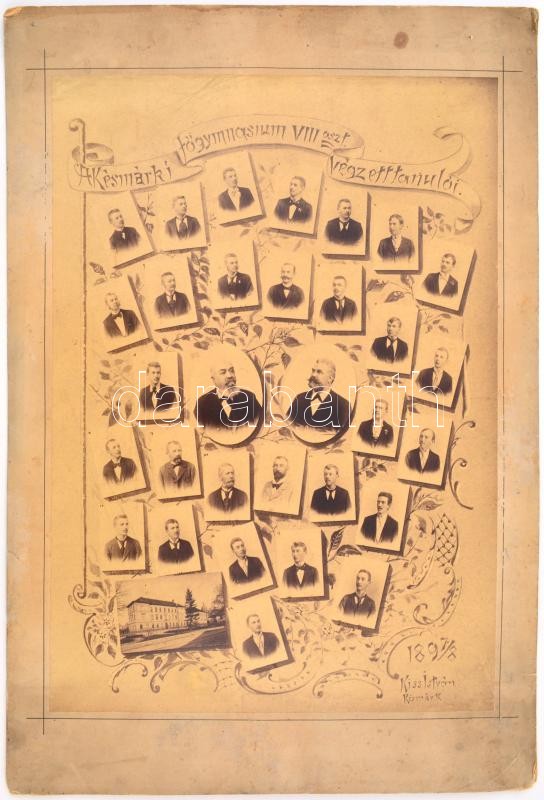 A Késmárki főgymnasium VIII oszt. végzett tanulói.
darabanth
189 7/8
Kiss István
Késmárk